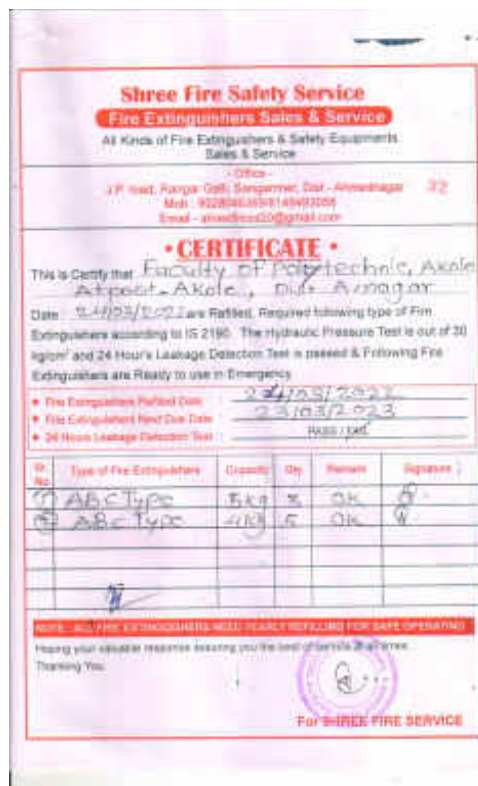 Shree Fire Safety Service
Fire Extinguishers Sales & Service
All Kinds of Fire Extinguishers & Safety Equipments
Sales & Service
- Office -
J.P. Road, Rangar Galli, Sangamner, Dist - Ahmednagar 32
Mob :
Email -
• CERTIFICATE •
This is Certify that Faculty of Polytechnic, Akole
At post - Akole, Dist A.nagar
Date 24/03/2022 are Refilled, Required following type of Fire
Extinguishers according to IS 2190. The Hydraulic Pressure Test is out of 30
kg/cm² and 24 Hour's Leakage Detection Test is passed & Following Fire
Extinguishers are Ready to use in Emergency
• Fire Extinguishers Refilled Date : 24/03/2022
• Fire Extinguishers Next Due Date : 23/03/2023
• 24 Hours Leakage Detection Test : PASS / FAIL
Sr. No. Type of Fire Extinguishers Capacity Qty. Remark Signature
1 ABC Type 5kg OK
2 ABC Type 4kg 5 OK
NOTE : ALL FIRE EXTINGUISHERS NEED YEARLY REFILLING FOR SAFE OPERATING
Hoping your valuable response assuring you the best of service at all times.
Thanking You.
For SHREE FIRE SERVICE